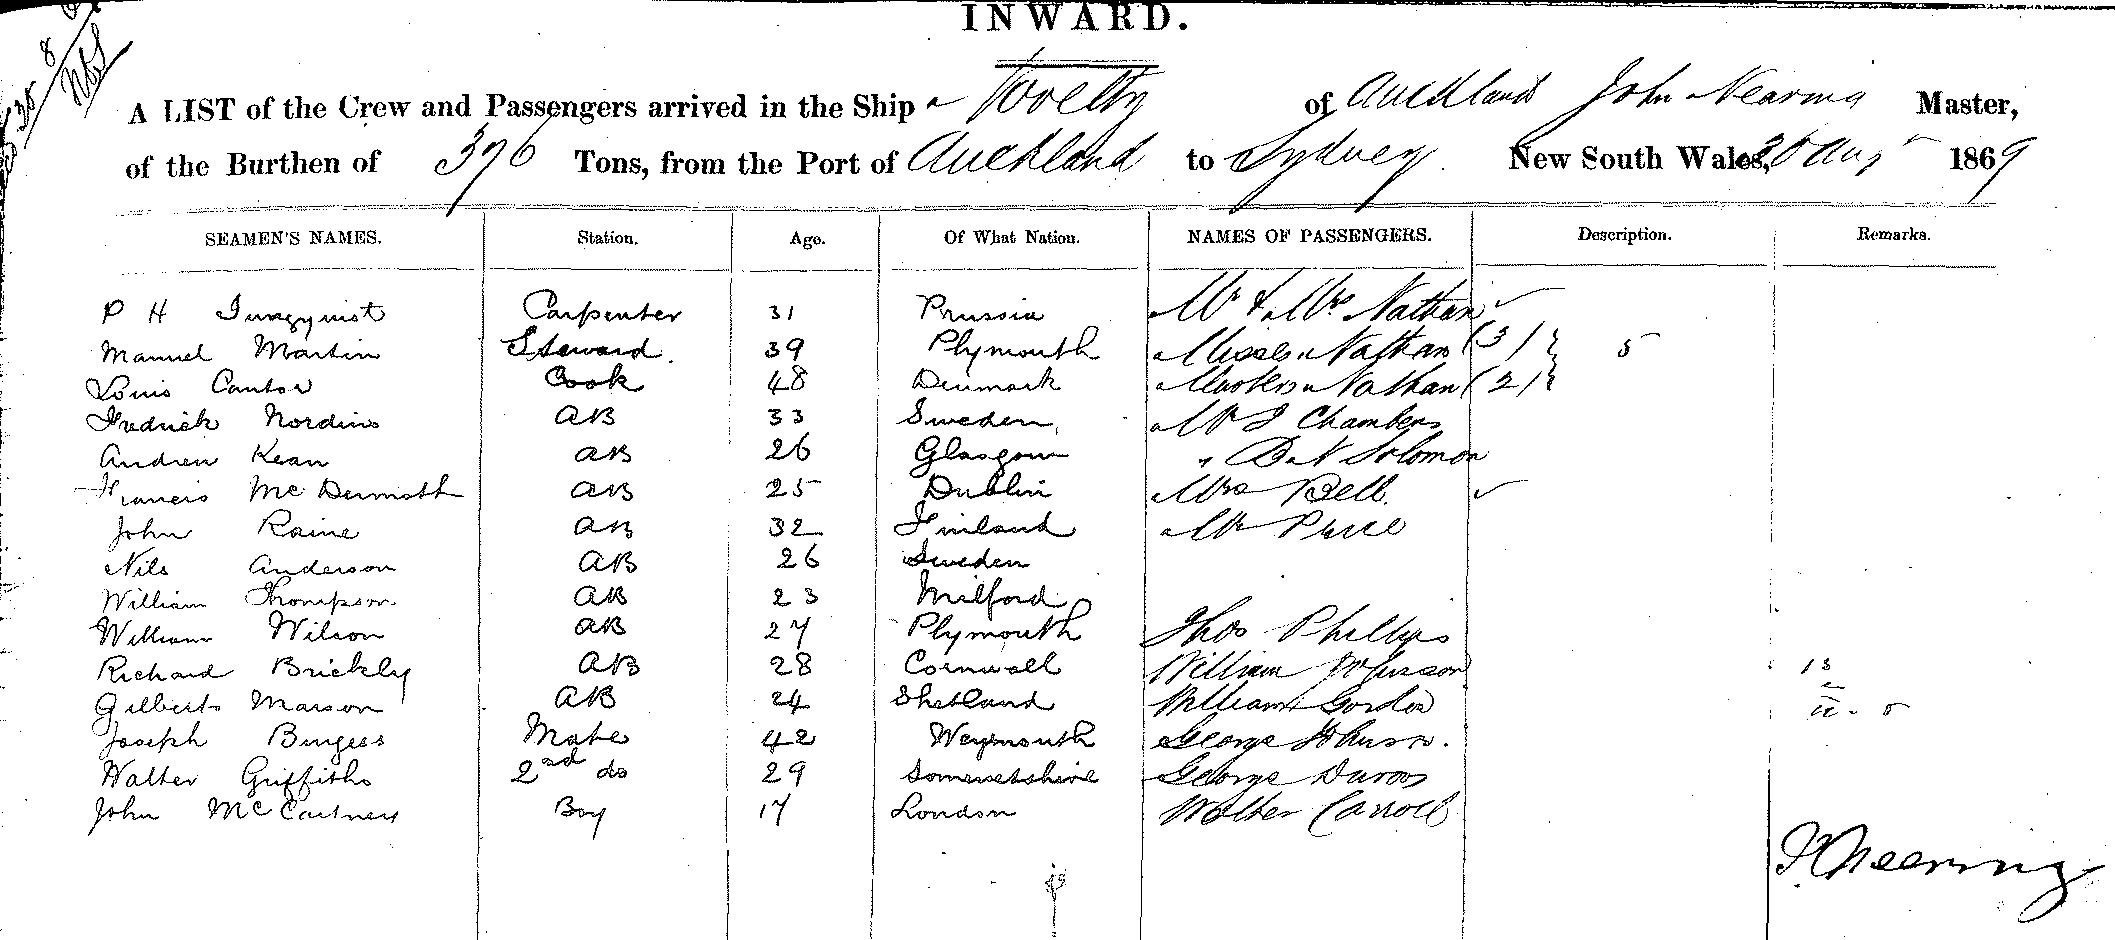 INWARD.
A LIST of the Crew and Passengers arrived in the Ship Novelty of Auckland John Nearing Master,
of the Burthen of 376 Tons, from the Port of Auckland to Sydney New South Wales, Aug 1869
SEAMEN'S NAMES. Station. Age. Of What Nation. NAMES OF PASSENGERS. Description. Remarks.
P H Carpenter 31 Prussia Mr & Mrs Nathan
Manuel Martin Steward. 39 Plymouth Misses Nathan (3) 5
Louis Cantor Cook 48 Denmark Masters Nathan (2)
Fredrick Nordins AB 33 Sweden Mr J Chambers
Andrew Kean AB 26 Glasgow " Solomon
Francis McDermoth AB 25 Dublin Mrs Bell.
John Raine AB 32 Finland Mr
Nils Anderson AB 26 Sweden
William Thompson AB 23 Milford
William Wilson AB 27 Plymouth Thos Phillips
Richard Brickly AB 28 Cornwall William 13
Gilbert Manson AB 24 Shetland William Gordon
Joseph Burgess Mate 42 Weymouth George Johnson.
Walter Griffiths 2nd do 29 Somersetshire George
John McCartney Boy 17 London Walter Carroll
J Nearing